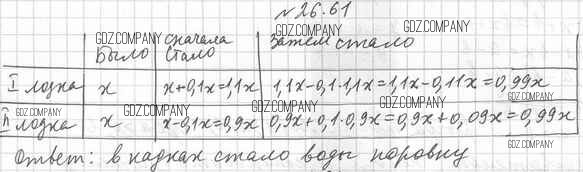 №26.61
GDZ.COMPANY
GDZ.COMPANY
Было
сначала стало
Затем стало
I лодка
x
x+0,1x=1,1x
1,1x-0,1·1,1x=1,1x-0,11x=0,99x
GDZ.COMPANY
GDZ.COMPANY
GDZ.COMPANY
GDZ.COMPANY
GDZ.COMPANY
II лодка
x
x-0,1x=0,9x
0,9x+0,1·0,9x=0,9x+0,09x=0,99x
GDZ.COMPANY
Ответ: в кадках стало воды поровну